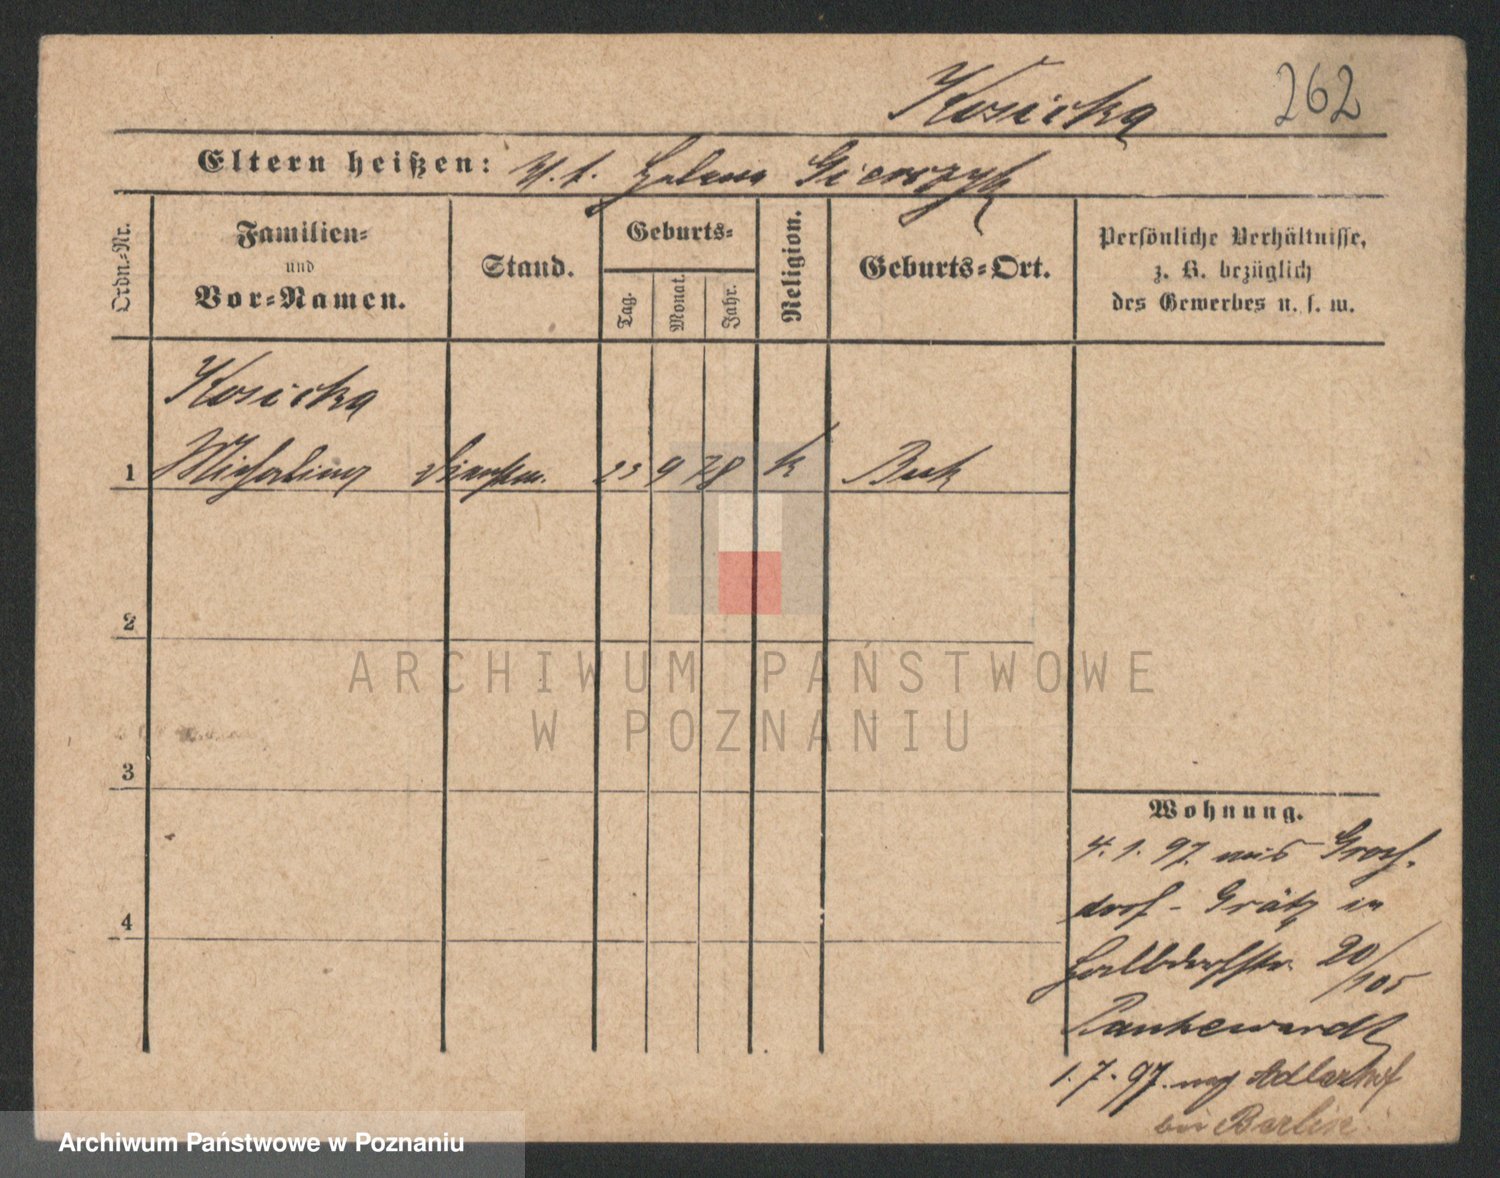 Kosicka 262
Eltern heißen: N. t. Helena Gierszyk
Ordn.-Nr.
Familien-
und
Vor-Namen.
Stand.
Geburts-
Tag.
Monat.
Jahr.
Religion.
Geburts-Ort.
Persönliche Verhältnisse,
z. B. bezüglich
des Gewerbes u. s. w.
Kosicka
1 Michalina 23 9 78 k Buk
2
ARCHIWUM PAŃSTWOWE
W POZNANIU
3
Wohnung.
4. 1. 97. aus
dorf - Grätz in
4
Halbdorfstr. 20/105
1. 7. 97. nach Adlershof
bei Berlin
Archiwum Państwowe w Poznaniu